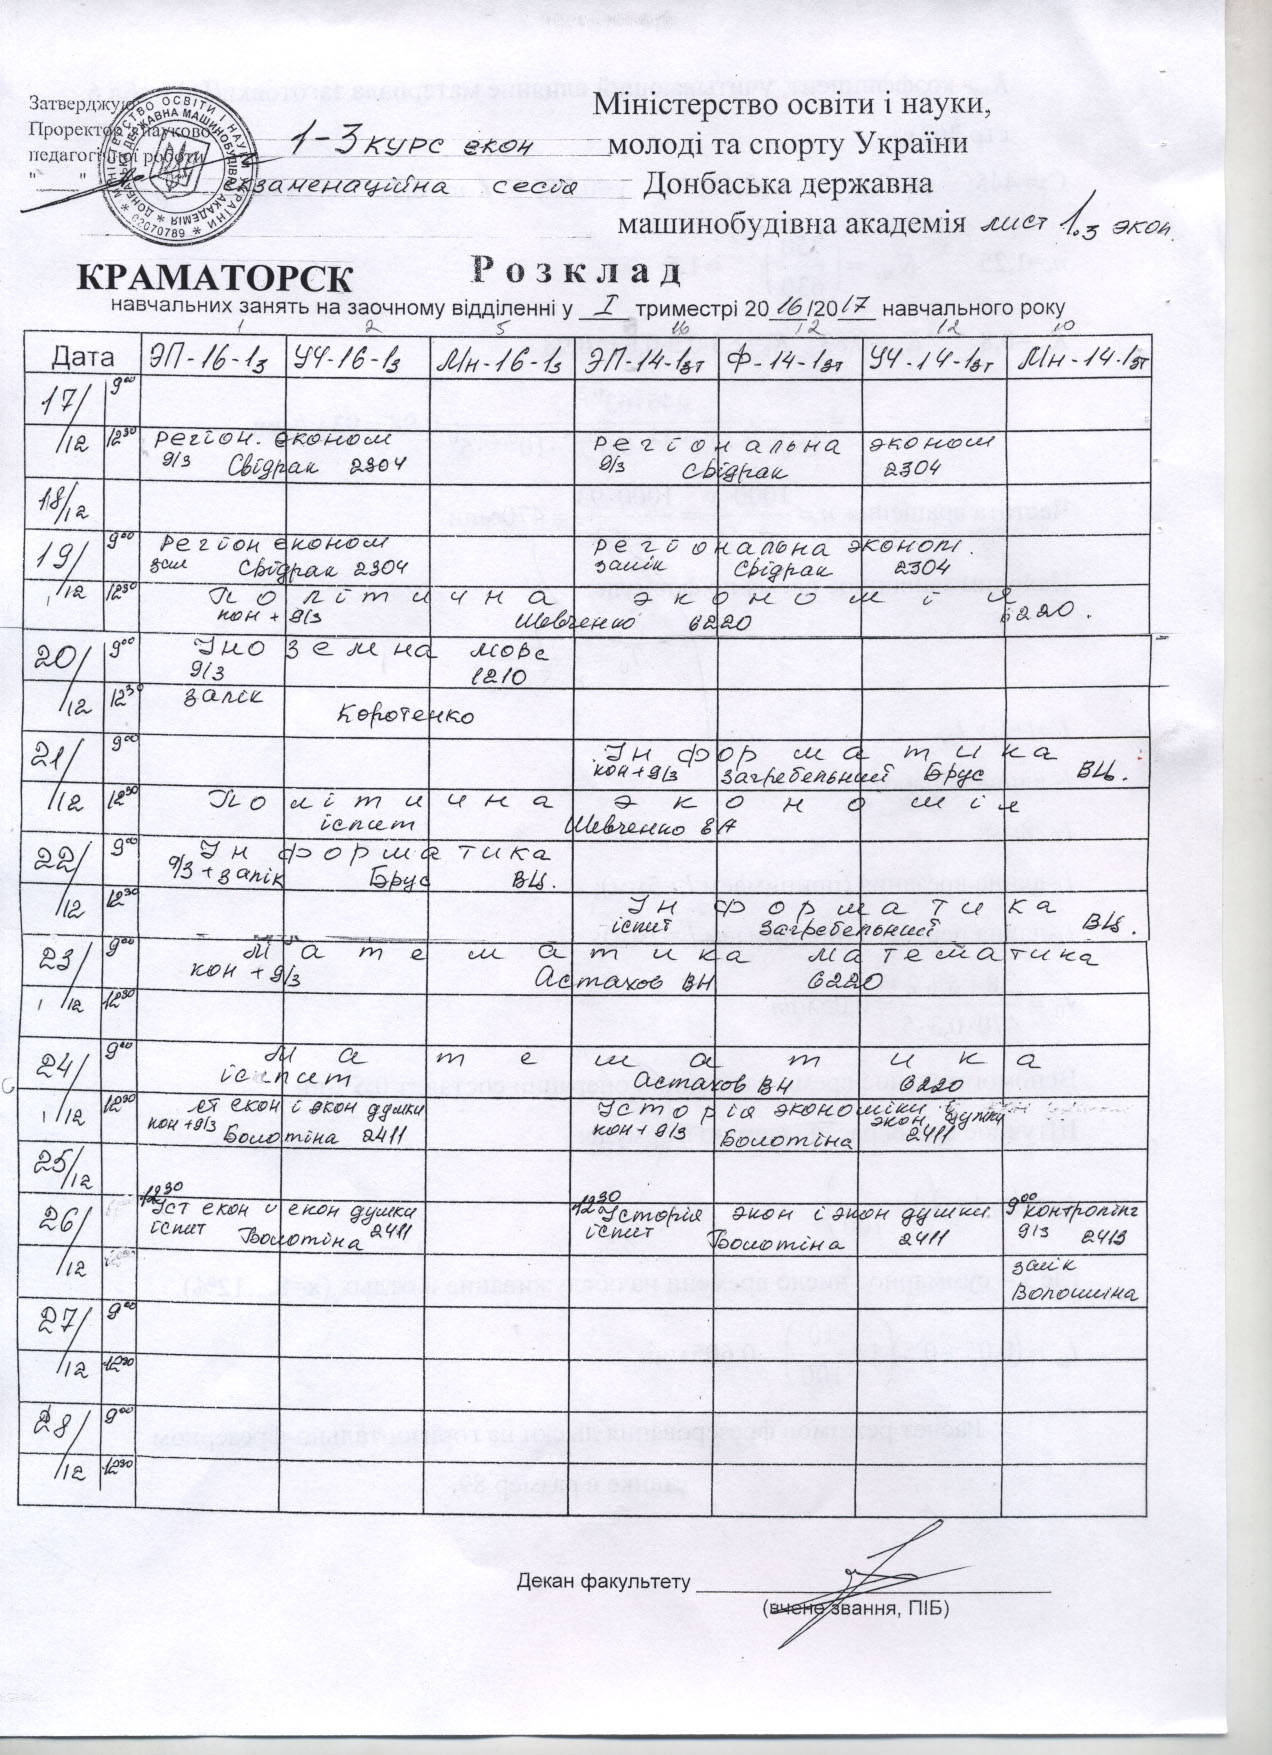 Затверджую
Проректор з науково
педагогічної роботи
"____"
1-3 курс екон
екзаменаційна сесія
Міністерство освіти і науки,
молоді та спорту України
Донбаська державна
машинобудівна академія лист 1.з экон.
КРАМАТОРСК
Розклад
навчальних занять на заочному відділенні у I триместрі 2016/2017 навчального року
1 2 5 16 12 12 10
Дата ЭП-16-1з УЧ-16-1з Мн-16-1з ЭП-14-1зт Ф-14-1зт УЧ-14-1зт Мн-14-1зт
17/12 9⁰⁰
12³⁰ регіон. економ регіональна эконом
д/з Свідрак 2304 д/з Свідрак 2304
18/12
19/12 9⁰⁰ регіон економ регіональна эконом.
зал Свідрак 2304 залік Свідрак 2304
12³⁰ Політична экономія
кон + д/з Шевченко 6220 6220.
20/12 9⁰⁰ Іноземна мова
д/з 1210
12³⁰ залік
Коротенко
21/12 9⁰⁰ Інформатика
кон + д/з Загребельний Брус ВЦ.
12³⁰ Політична экономія
іспит Шевченко ВА
22/12 9⁰⁰ Інформатика
д/з + залік Брус ВЦ.
12³⁰ Інформатика
іспит Загребельний ВЦ.
23/12 9⁰⁰ Математика математика
кон + д/з Астахов ВН 6220
12³⁰
24/12 9⁰⁰ Математика
іспит Астахов ВН 6220
12³⁰ іст екон і экон думки Історія экономіки і экон думки
кон + д/з Болотіна 2411 кон + д/з Болотіна 2411
25/12
26/12 12³⁰ 12³⁰ 9⁰⁰
Іст екон и екон думки Історія экон і экон думки контролінг
іспит Болотіна 2411 іспит Болотіна 2411 д/з 2413
залік
Волошина
27/12 9⁰⁰
12³⁰
28/12 9⁰⁰
12³⁰
Декан факультету
(вчене звання, ПІБ)